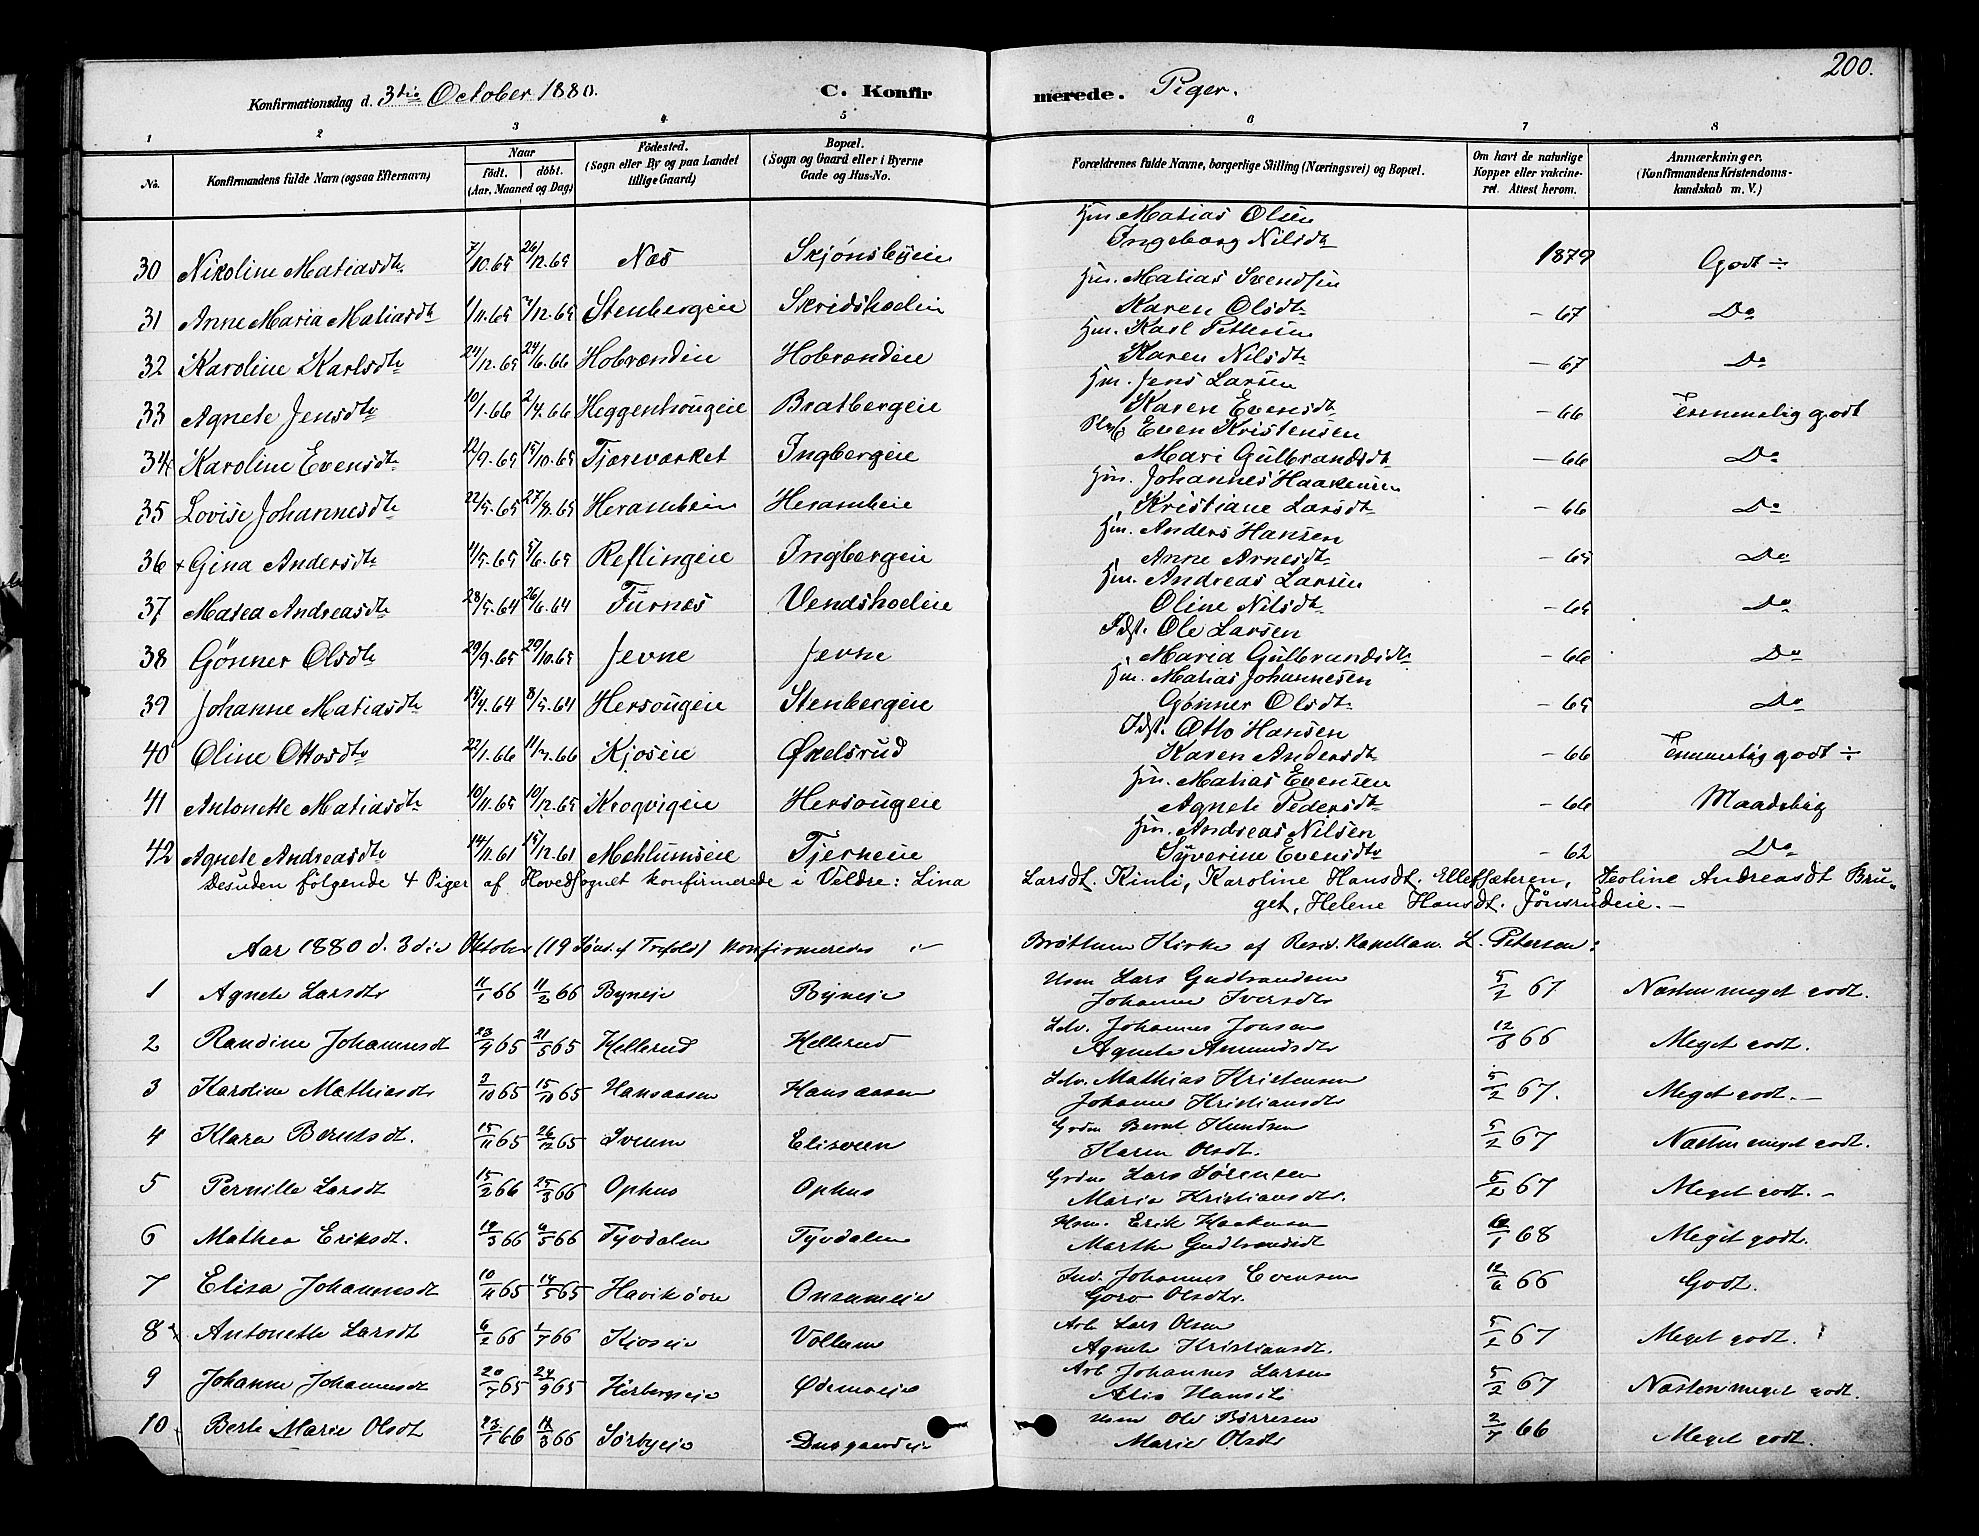 200.
Konfirmationsdag d. 3die October 1880. C. Konfirmerede. Piger.
1 2 3 4 5 6 7 8
No. Konfirmandens fulde Navn (ogsaa Efternavn) Naar födt. döbt. (Aar, Maaned og Dag) Födested. (Sogn eller By og paa Landet tillige Gaard) Bopæl. (Sogn og Gaard eller i Byerne Gade og Hus-No. Forældrenes fulde Navne, borgerlige Stilling (Næringsvei) og Bopæl. Om havt de naturlige Kopper eller vakcineret. Attest herom. Anmærkninger. (Konfirmandens Kristendomskundskab m. V.)
Hm. Matias Olsen
30 Nikoline Matiasdtr 7/10.65 26/12.65 Næs Skjønsbyeie Ingeborg Nilsdtr 1879 Godt ÷
Hm. Matias Svendsen
31 Anne Maria Matiasdtr 1/11.65 /12.65 Stenbergeie Skridshoelen Karen Olsdtr - 67 Do
Hm. Karl Pettersen
32 Karoline Karlsdtr 24/12.65 24/6.66 Hobrændeie Hobrændeie Karen Nilsdtr - 67 Do
Hm. Jens Larsen
33 Agnete Jensdtr 10/1.66 2/4.66 Heggenhougeie Bratbergeie Karen Evensdtr - 66 Temmelig godt
Even Kristensen
34 Karoline Evensdtr 12/9.65 15/10.65 Tjernværket Ingbergeie Mari Gulbrandsdtr - 66 Do
Hm. Johannes Haakensen
35 Lovise Johannesdtr 22/5.65 27/8.65 Herambeie Herambeie Kristiane Larsdtr - 66 Do
Hm. Anders Hansen
36 + Gina Andersdtr 4/5.65 5/6.65 Reflingeie Ingbergeie Anne Arnesdtr - 65 Do
Hm. Andreas Larsen
37 Matea Andreasdtr 28/5.64 26/6.64 Furnæs Vendshoeleie Oline Nilsdtr - 65 Do
Idst. Ole Larsen
38 Gønner Olsdtr 29/9.65 29/10.65 Jevne Jevne Maria Gulbrandsdtr - 66 Do
Hm. Matias Johannesen
39 Johanne Matiasdtr 15/4.64 8/5.64 Hersougeie Stenbergeie Gønner Olsdtr - 65 Do
Idst. Otto Hansen
40 Oline Ottosdtr 22/1.66 11/3.66 Kjoseie Øxelsrud Karen Andersdtr - 66 Temmelig godt ÷
Hm. Matias Evensen
41 Antonette Matiasdtr 10/11.65 10/12.65 Krogvigeie Hersougeie Agnete Pedersdtr - 66 Maadelig
Hm. Andreas Nilsen
42 Agnete Andreasdtr 14/11.61 15/12.61 Mæhlumseie Tjerneeie Syverine Evensdtr - 62 Do
Desuden følgende 4 Piger af Hovedsognet konfirmerede i Veldre: Lina Larsdt. Kinli, Karoline Hansdt. Ellefsæteren, Teoline Andreasdt Bruget, Helene Hansdt. Jønsrudeie. -
Aar 1880 d. 3die Oktober (19 Sønd. ef Trefold) konfirmeredes i Brøttum Kirke af Resid. Kapellan L. Petersen:
Hsm Lars Gudbrandsen
1 Agnete Larsdtr 11/1 66 11/2 66 Byneie Byneie Johanne Iversdtr 5/2 67 Næsten meget godt.
Selv. Johannes Jonsen
2 Randine Johannesdt 23/4 65 21/5 65 Hellerud Hellerud Agnete Amundsdtr 12/8 66 Meget godt.
Selv. Mathias Kristensen
3 Karoline Mathiasdt 2/10 65 15/10 65 Hansaasen Hansaasen Johanne Kristiansdtr 5/2 67. Meget godt. -
Grdm Bernt Knudsen
4 Klara Berntsdt. 15/11 65 26/12 65 Sveum Elisveen Karen Olsdt. 5/2 67 Næsten meget godt.
Grdm Lars Sørensen
5 Pernille Larsdt 15/2 66 25/3 66 Ophus Ophus Marie Kristiansdtr. 5/2 67 Meget godt. -
Hsm. Erik Haakensen
6 Mathea Eriksdt. 19/3 66 6/5 66 Tyvdalen Tyvdalen Marthe Gudbrandsdt /1 68 Meget godt.
Ind. Johannes Evensen
7 Elisa Johannesdt 10/4 65 14/5 65 Havikøre Onsumeie Goro Olsdtr. 12/6 66 Godt.
Arb Lars Olsen
8 Antonette Larsdt 6/2 66 1/7 66 Kjoseie Vollum Agnete Kristiansdt. 5/2 67 Meget godt.
Arb Johannes Larsen
9 Johanne Johannesdt 20/7 65 24/9 65 Hørbergseie Ødemoeie Alis Hansdt 5/2 67 Næsten meget godt.
Hsm Ole Børresen
10 Berte Marie Olsdt 23/1 66 18/3 66 Sørbyeie Dusgaardeie Marie Olsdtr 2/7 66 Meget godt.